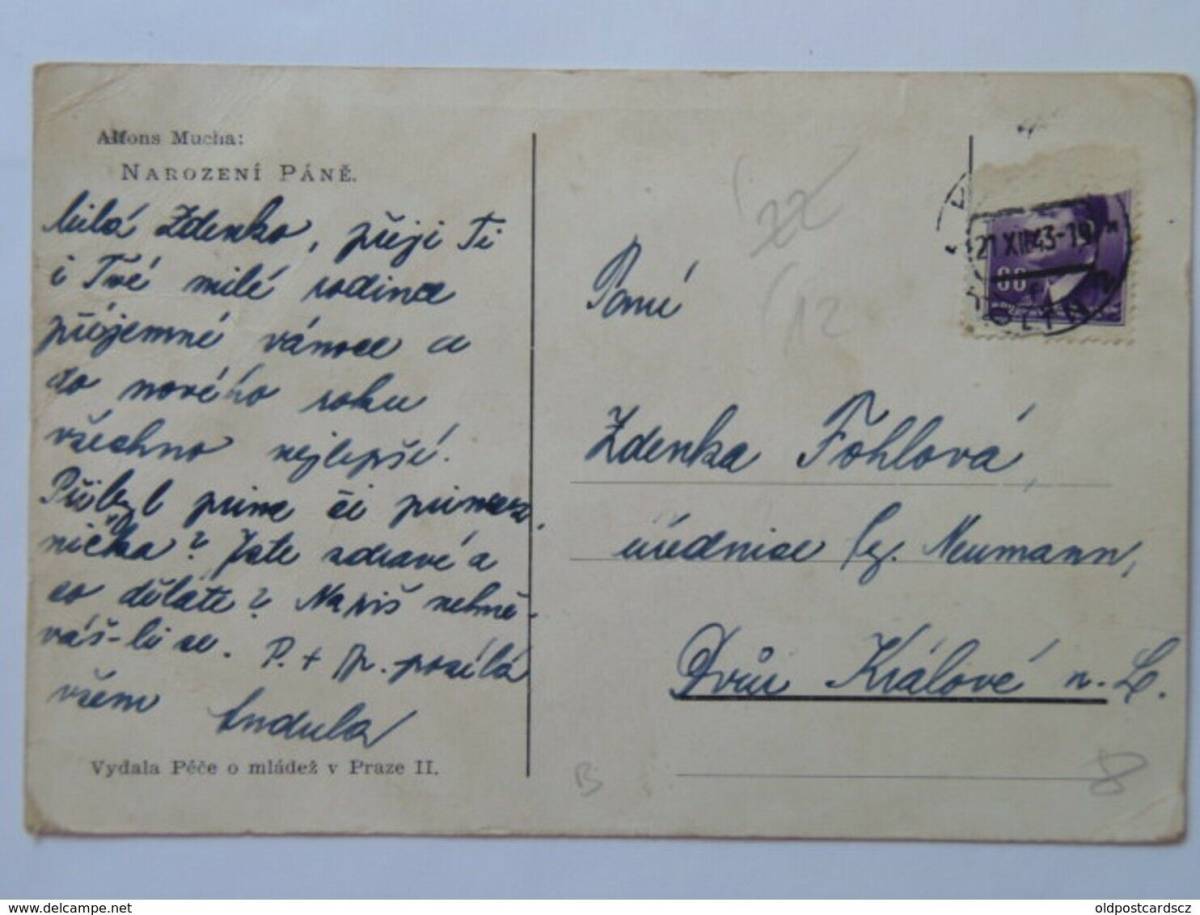 Alfons Mucha:
NAROZENÍ PÁNĚ.
Milá Zdenko, přeji Ti
i Tvé milé rodince
příjemné vánoce a
do nového roku
všechno nejlepší.
Přibyl princ či princez-
nička? Jste zdravé a
co děláte? Napiš nehně-
váš-li se. P. + p. posílá
všem Andula
Vydala Péče o mládež v Praze II.
22
12
21 XII 43-19
60
Paní
Zdenka Fohlová,
úřednice fy. Neumann,
Dvůr Králové n. L.
B
oldpostcards.cz
oldpostcardscz